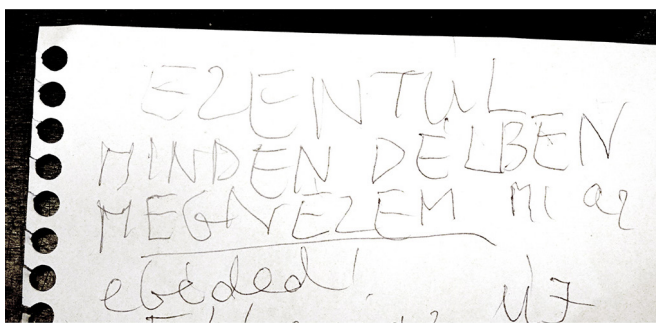 EZENTÚL
MINDEN DÉLBEN
MEGNÉZEM MI AZ
ebéded!
ÚJ